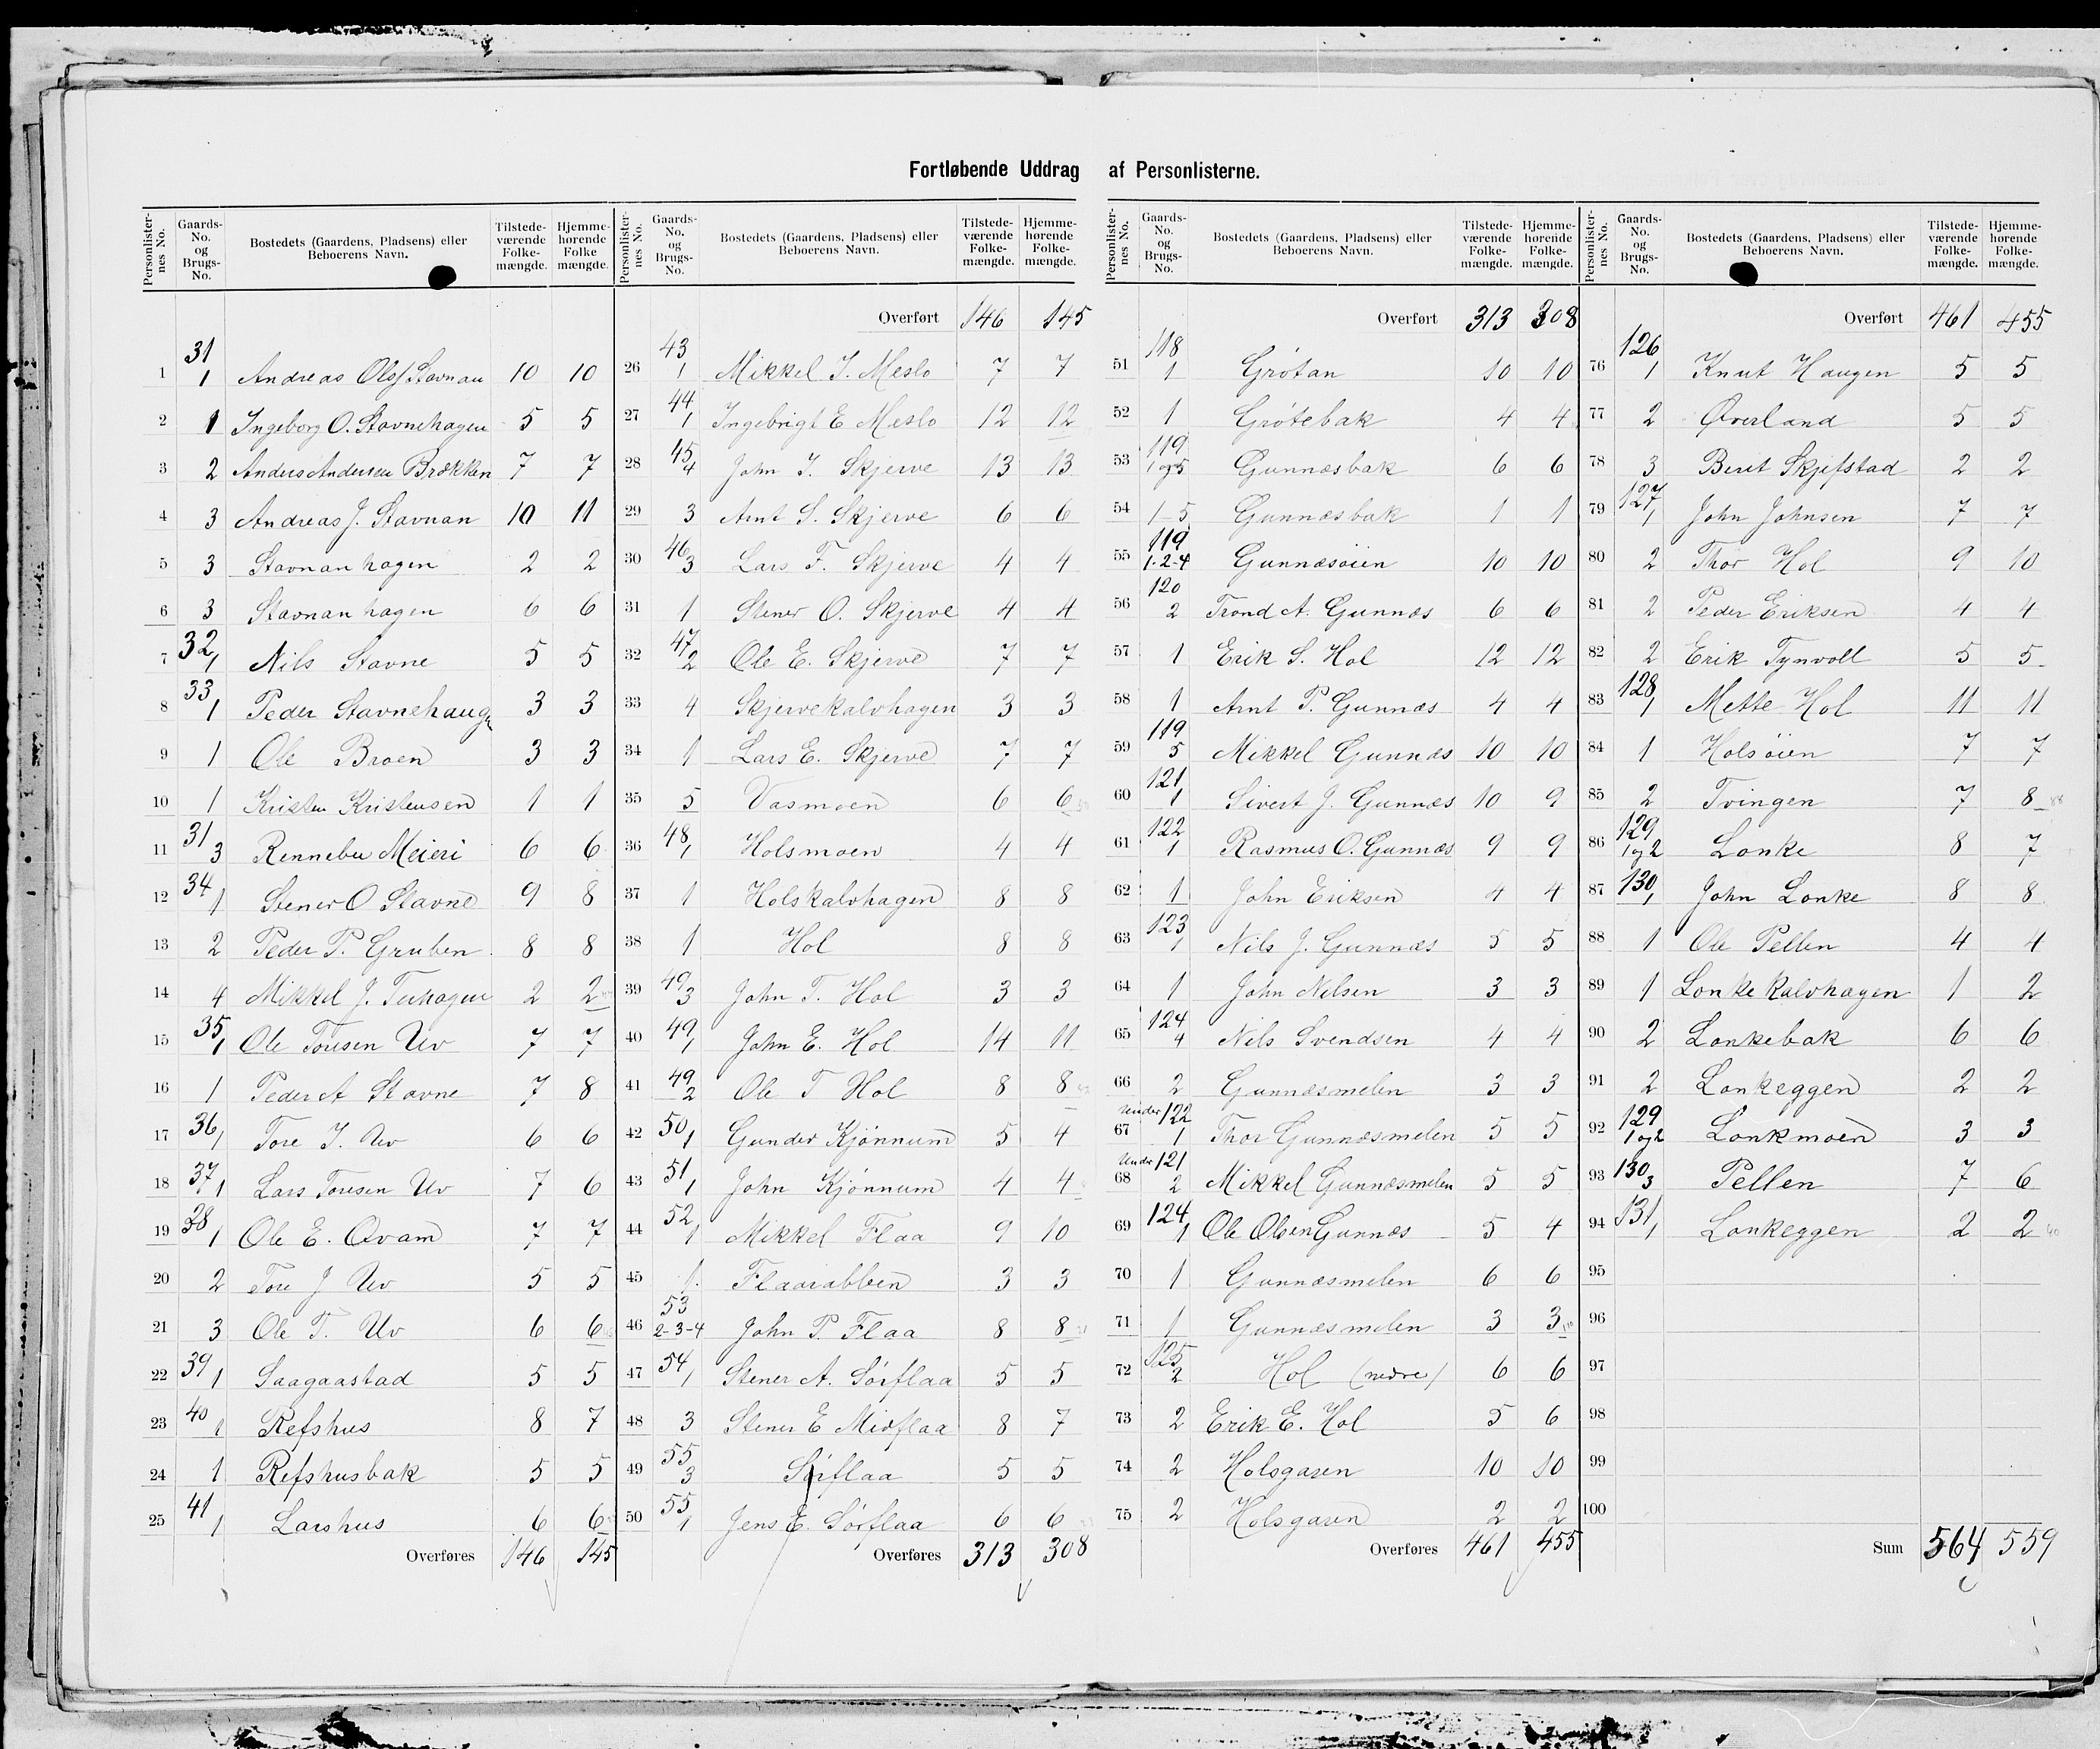 Fortløbende Uddrag af Personlisterne.
Personlister-nes No. Gaards-No. og Brugs-No. Bostedets (Gaardens, Pladsens) eller Beboerens Navn. Tilstede-værende Folke-mængde. Hjemme-hørende Folke mængde.
31
1 1 Andreas Olsf Stavnan 10 10
2 1 Ingeborg O. Stavnehagen 5 5
3 2 Anders Andersen Brækken 7 7
4 3 Andreas J. Stavnan 10 11
5 3 Stavnanhagen 2 2
6 3 Stavnanhagen 6 6
32
7 1 Nils Stavne 5 5
33
8 1 Peder Stavnehaug 3 3
9 1 Ole Broen 3 3
10 1 Kristen Kristensen 1 1
31
11 3 Rennebu Meieri 6 6
34
12 1 Stener O Stavne 9 8
13 2 Peder P. Gruben 8 8
14 4 Mikkel J. 2 2
35
15 1 Ole Toresen Uv 7 7
16 1 Peder A Stavne 7 8
36
17 1 Tore J. Uv 6 6
37
18 1 Lars Toresen Uv 7 6
38
19 1 Ole E. Qvam 7 7
20 2 Tore J Uv 5 5
21 3 Ole T. Uv 6 6
39
22 1 Saagaastad 5 5
40
23 1 Refshus 8 7
24 1 Refshusbak 5 5
41
25 1 Larshus 6 6
Overføres 146 145
Personlister-nes No. Gaards-No. og Brugs-No. Bostedets (Gaardens, Pladsens) eller Beboerens Navn. Tilstede-værende Folke-mængde. Hjemme-hørende Folke-mængde.
Overført 146 145
43
26 1 Mikkel J. Meslo 7 7
44
27 1 Ingebrigt E Meslo 12 12
45
28 4 John J. Skjerve 13 13
29 3 Arnt S. Skjerve 6 6
46
30 3 Lars F. Skjerve 4 4
31 1 Stener O. Skjerve 4 4
47
32 2 Ole E. Skjerve 7 7
33 4 Skjervekalvhagen 3 3
34 1 Lars E. Skjerve 7 7
35 5 Vasmoen 6 6
48
36 1 Holsmoen 4 4
37 1 Holskalvhagen 8 8
38 1 Hol 8 8
49
39 3 John T. Hol 3 3
49
40 1 John E. Hol 14 11
49
41 2 Ole T Hol 8 8
50
42 1 Gunder Kjønnum 5 4
51
43 1 John Kjønnum 4 4
52
44 1 Mikkel Flaa 9 10
45 1. Flaarabben 3 3
53
46 2-3-4 John P. Flaa 8 8
54
47 1 Stener A. Sørflaa 5 5
48 3 Stener E Midflaa 8 7
55
49 3 Sørflaa 5 5
55
50 1 Jens E. Sørflaa 6 6
Overføres 313 308
Personlister-nes No. Gaards-No. og Brugs-No. Bostedets (Gaardens, Pladsens) eller Beboerens Navn. Tilstede-værende Folke-mængde. Hjemme-hørende Folke-mængde.
Overført 313 308
118
51 1 Grøtan 10 10
52 1 Grøtebak 4 4
119
53 1 og 5 Gunnæsbak 6 6
54 1-5 Gunnæsbak 1 1
119
55 1-2-4 Gunnæsøien 10 10
120
56 2 Trond A. Gunnæs 6 6
57 1 Erik S. Hol 12 12
58 1 Arnt P. Gunnæs 4 4
119
59 5 Mikkel Gunnæs 10 10
121
60 1 Sivert J. Gunnæs 10 9
122
61 1 Rasmus O. Gunnæs 9 9
62 1 John Eriksen 4 4
123
63 1 Nils J. Gunnæs 5 5
64 1 John Nilsen 3 3
124
65 4 Nils Svendsen 4 4
66 2 Gunnæsmelen 3 3
Under 122
67 1 Thor Gunnæsmelen 5 5
Under 121
68 2 Mikkel Gunnæsmelen 5 5
124
69 1 Ole Olsen Gunnæs 5 4
70 1 Gunnæsmelen 6 6
71 1 Gunnæsmelen 3 3
125
72 2 Hol (nedre) 6 6
73 2 Erik E. Hol 5 6
74 2 Holsgaren 10 10
75 2 Holsgaren 2 2
Overføres 461 455
Personlister-nes No. Gaards-No. og Brugs-No. Bostedets (Gaardens, Pladsens) eller Beboerens Navn. Tilstede-værende Folke-mængde. Hjemme-hørende Folke-mængde.
Overført 461 455
126
76 1 Knut Haugen 5 5
77 2 Øverland 5 5
78 3 Berit Skjefstad 2 2
127
79 1 John Johnsen 7 7
80 2 Thor Hol 9 10
81 2 Peder Eriksen 4 4
82 2 Erik Tynvoll 5 5
128
83 1 Mette Hol 11 11
84 1 Holsøien 7 7
85 2 Tvingen 7 8
129
86 1 og 2 Lonke 8 7
130
87 1 John Lonke 8 8
88 1 Ole Pellen 4 4
89 1 Lonkekalvhagen 1 2
90 2 Lonkebak 6 6
91 2 Lonkeggen 2 2
129
92 1 og 2 Lonkmoen 3 3
130
93 3 Pellen 7 6
131
94 1 Lonkeggen 2 2
95
96
97
98
99
100
Sum 564 559